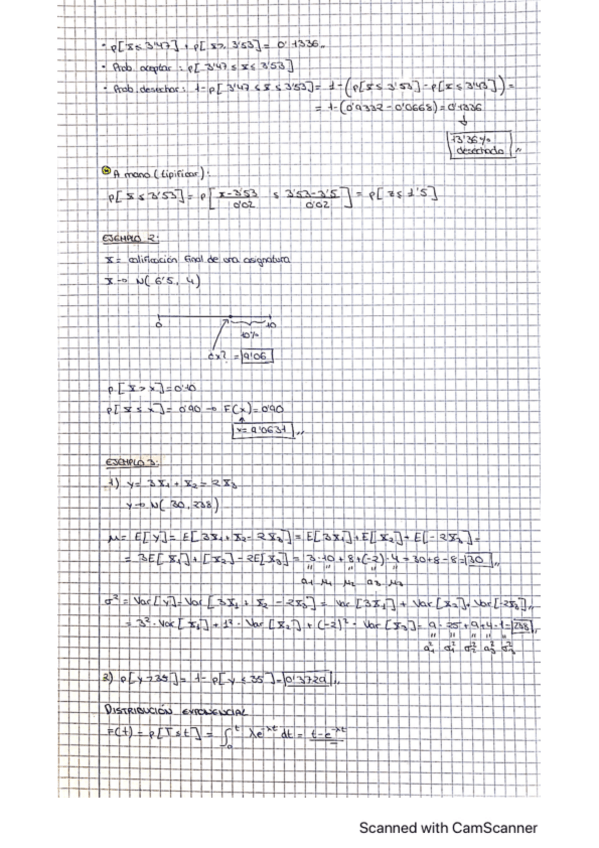 · p[x≤3'47] + p[x≥3'53] = 0'1336
· Prob. aceptar: p[3'47≤x≤3'53]
· Prob. desechar: 1-p[3'47≤x≤3'53] = 1-(p[x≤3'53]-p[x≤3'47]) =
= 1-(0'9332-0'0668) = 0'1336
↓
13'36%
desechado
A mano (tipificar):
p[x≤3'53] = p[ x-3'53 / 0'02 ≤ 3'53-3'5 / 0'02 ] = p[z≤1'5]
EJEMPLO 2:
x = calificación final de una asignatura
x → N(6'5, 4)
0 10
10%
¿x? = 9'06
p[x>x] = 0'10
p[x≤x] = 0'90 → F(x) = 0'90
x = 9'0631
EJEMPLO 3:
1) y = 3x₁ + x₂ - 2x₃
y → N(30, 238)
μ = E[y] = E[3x₁+x₂-2x₃] = E[3x₁]+E[x₂]+E[-2x₃] =
= 3E[x₁]+[x₂]-2E[x₃] = 3·10+8+(-2)·4 = 30+8-8 = 30
a₁ μ₁ μ₂ a₃ μ₃
σ² = Var[y] = Var[3x₁+x₂-2x₃] = Var[3x₁]+Var[x₂]+Var[-2x₃]
= 3²·Var[x₁]+1²·Var[x₂]+(-2)²·Var[x₃] = 9·25+9+4·1 = 238
a₁² σ₁² σ₂² a₃² σ₃²
2) p[y>35] = 1-p[y≤35] = 0'3729
DISTRIBUCIÓN EXPONENCIAL
F(t) = p[T≤t] = ∫₀ᵗ λe^-λt dt = 1-e^-λt
Scanned with CamScanner